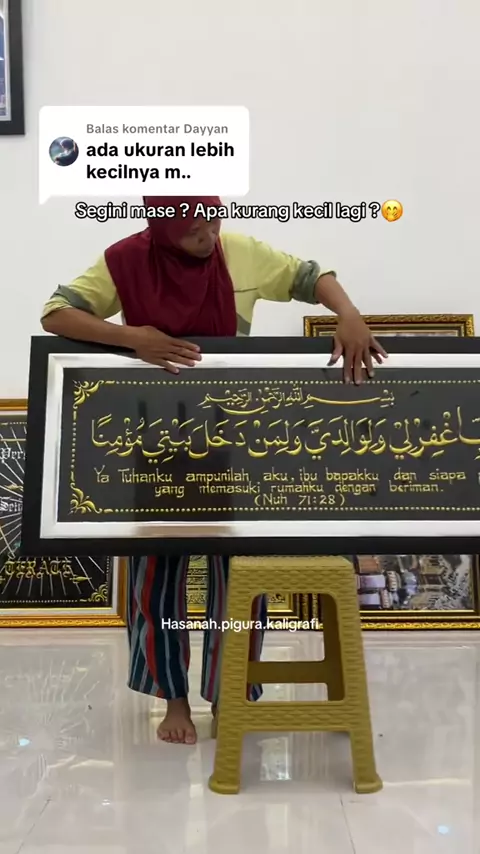 Balas komentar Dayyan
ada ukuran lebih
kecilnya m..
Segini mase ? Apa kurang kecil lagi ?🤭
بِسْمِ اللهِ الرَّحْمٰنِ الرَّحِيْمِ
اغْفِرْلِيْ وَلِوَالِدَيَّ وَلِمَنْ دَخَلَ بَيْتِيَ مُؤْمِنًا
Ya Tuhanku ampunilah aku, ibu bapakku dan siapa
yang memasuki rumahku dengan beriman.
(Nuh 71:28)
Hasanah.pigura.kaligrafi